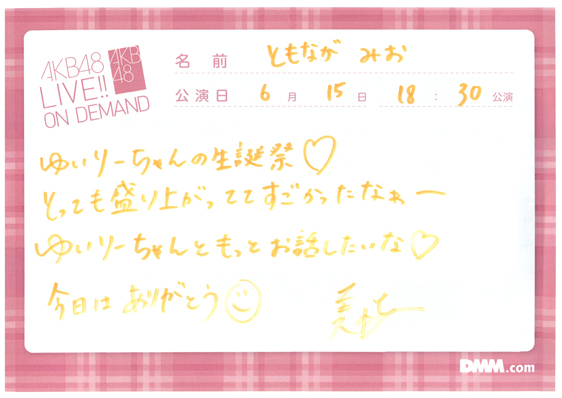 AKB48
LIVE!!
ON DEMAND
AKB
48
名前 ともなが みお
公演日 6月 15日 18:30公演
ゆいりーちゃんの生誕祭♡
とっても盛り上がっててすごかったなぁー
ゆいりーちゃんともっとお話したいな♡
今日はありがとう☺
DMM.com